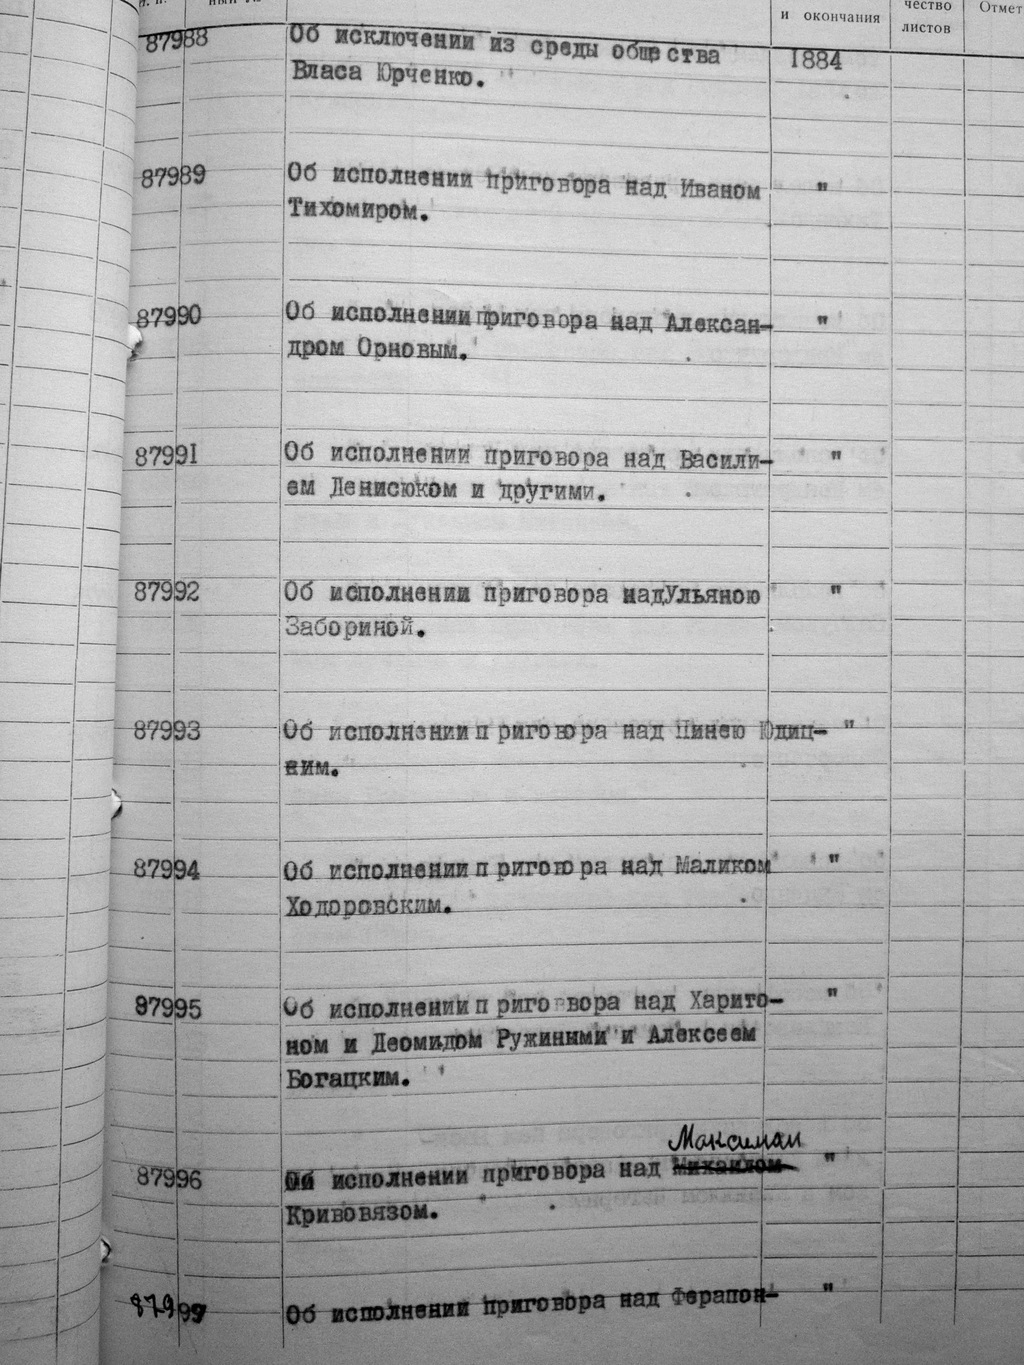 и окончания
чество
листов
Отмет
87988
Об исключении из среды общества
1884
Власа Юрченко.
87989
Об исполнении приговора над Иваном "
Тихомиром.
87990
Об исполнении приговора над Алексан- "
дром Орновым.
87991
Об исполнении приговора над Васили- "
ем Денисюком и другими.
87992
Об исполнении приговора надУльяною "
Забориной.
87993
Об исполнении п риговора над Пинею Юдиц- "
ким.
87994
Об исполнении п риговора над Маликом "
Ходоровским.
87995
Об исполнении п риговора над Харито- "
ном и Деомидом Ружиными и Алексеем
Богацким.
87996
Об исполнении приговора над Михаилом "
Кривовязом.
87997
Об исполнении приговора над Ферапон- "